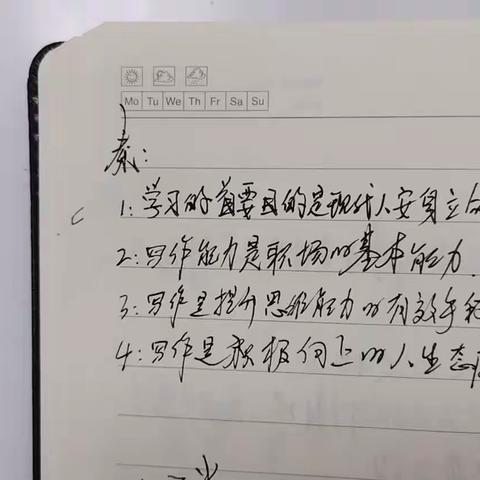 Mo Tu We Th Fr Sa Su
1:学习的首要目的是现代人安身立
2:写作能力是职场的基本能力.
3:写作是提升思维能力的有效手
4:写作是积极向上的人生态